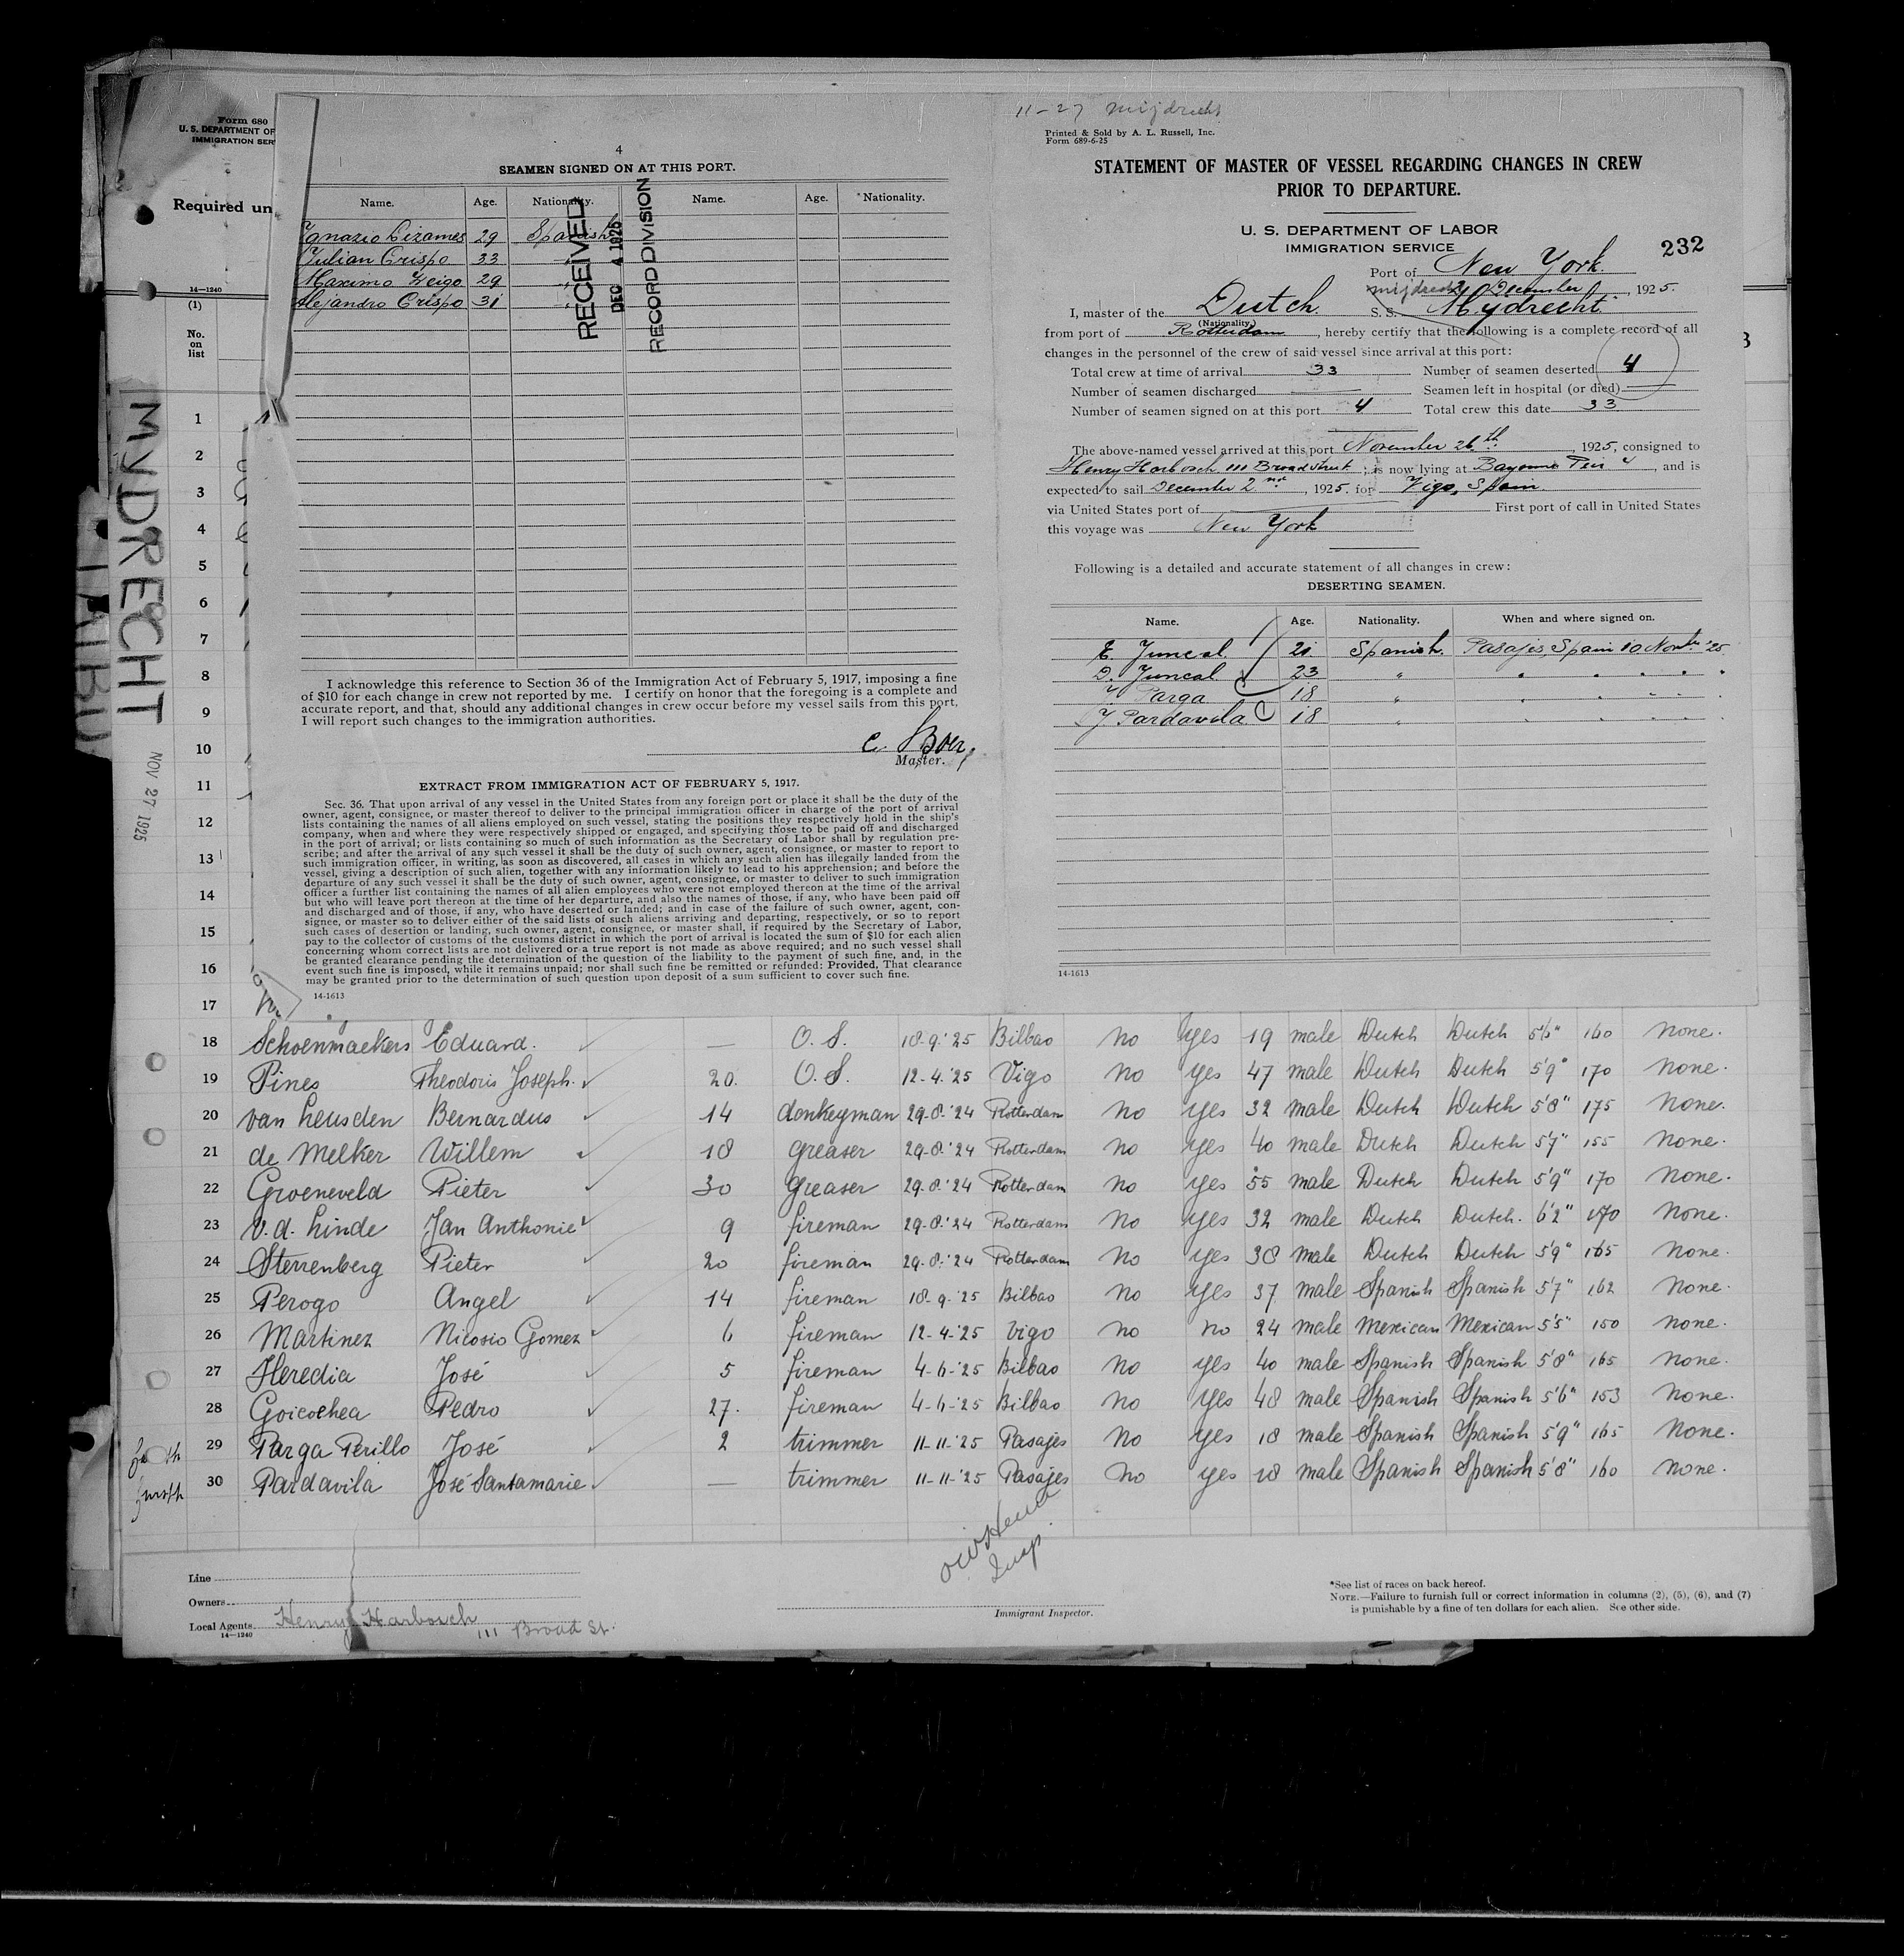 11-27 Mijdrecht
Form 680
U. S. DEPARTMENT OF
IMMIGRATION SER
Required un
14—1240
(1)
No.
on
list
MYDRECHT
NOV 27 1925
4
SEAMEN SIGNED ON AT THIS PORT.
Name. Age. Nationality. Name. Age. Nationality.
Ignazio Cizames 29 Spanish
Julian Crispo 33 "
Maximo Veigo 29 "
Alejandro Crispo 31 "
RECEIVED
DEC 4 1925
RECORD DIVISION
I acknowledge this reference to Section 36 of the Immigration Act of February 5, 1917, imposing a fine
of $10 for each change in crew not reported by me. I certify on honor that the foregoing is a complete and
accurate report, and that, should any additional changes in crew occur before my vessel sails from this port,
I will report such changes to the immigration authorities.
C. Boer,
Master.
EXTRACT FROM IMMIGRATION ACT OF FEBRUARY 5, 1917.
Sec. 36. That upon arrival of any vessel in the United States from any foreign port or place it shall be the duty of the
owner, agent, consignee, or master thereof to deliver to the principal immigration officer in charge of the port of arrival
lists containing the names of all aliens employed on such vessel, stating the positions they respectively hold in the ship's
company, when and where they were respectively shipped or engaged, and specifying those to be paid off and discharged
in the port of arrival; or lists containing so much of such information as the Secretary of Labor shall by regulation pre-
scribe; and after the arrival of any such vessel it shall be the duty of such owner, agent, consignee, or master to report to
such immigration officer, in writing, as soon as discovered, all cases in which any such alien has illegally landed from the
vessel, giving a description of such alien, together with any information likely to lead to his apprehension; and before the
departure of any such vessel it shall be the duty of such owner, agent, consignee, or master to deliver to such immigration
officer a further list containing the names of all alien employees who were not employed thereon at the time of the arrival
but who will leave port thereon at the time of her departure, and also the names of those, if any, who have been paid off
and discharged and of those, if any, who have deserted or landed; and in case of the failure of such owner, agent, con-
signee, or master so to deliver either of the said lists of such aliens arriving and departing, respectively, or so to report
such cases of desertion or landing, such owner, agent, consignee, or master shall, if required by the Secretary of Labor,
pay to the collector of customs of the customs district in which the port of arrival is located the sum of $10 for each alien
concerning whom correct lists are not delivered or a true report is not made as above required; and no such vessel shall
be granted clearance pending the determination of the question of the liability to the payment of such fine, and, in the
event such fine is imposed, while it remains unpaid; nor shall such fine be remitted or refunded: Provided, That clearance
may be granted prior to the determination of such question upon deposit of a sum sufficient to cover such fine.
14-1613
Printed & Sold by A. L. Russell, Inc.
Form 689-6-25
STATEMENT OF MASTER OF VESSEL REGARDING CHANGES IN CREW
PRIOR TO DEPARTURE.
U. S. DEPARTMENT OF LABOR
IMMIGRATION SERVICE
232
Port of New York.
Mijdrecht 2 December, 1925.
I, master of the Dutch S. S. Mydrecht
(Nationality)
from port of Rotterdam, hereby certify that the following is a complete record of all
changes in the personnel of the crew of said vessel since arrival at this port:
Total crew at time of arrival 33 Number of seamen deserted 4
Number of seamen discharged — Seamen left in hospital (or died) —
Number of seamen signed on at this port 4 Total crew this date 33
The above-named vessel arrived at this port November 26th, 1925, consigned to
Henry Harbosch 111 Broad Street; is now lying at Bayonne Pier 4, and is
expected to sail December 2nd, 1925. for Vigo, Spain
via United States port of — First port of call in United States
this voyage was New York
Following is a detailed and accurate statement of all changes in crew:
DESERTING SEAMEN.
Name. Age. Nationality. When and where signed on.
E. Juncal 21 Spanish. Pasajes, Spain 10 Novbr '25
D. Juncal 23 " " " " " "
J. Parga 18 " " " " " "
J. Pardavila 18 " " " " " "
14-1613
1
2
3
4
5
6
7
8
9
10
11
12
13
14
15
16
17
18 Schoenmaekers Eduard. — O. S. 18-9-'25 Bilbao No yes 19 male Dutch Dutch 5'6" 160 None.
19 Pines Theodoris Joseph. 20. O. S. 12-4-'25 Vigo No yes 47 male Dutch Dutch 5'9" 170 None.
20 van Leusden Bernardus 14 donkeyman 29-8-'24 Rotterdam No yes 32 male Dutch Dutch 5'8" 175 None.
21 de Melker Willem 18 greaser 29-8-'24 Rotterdam No yes 40 male Dutch Dutch 5'7" 155 None.
22 Groeneveld Pieter 30 greaser 29-8-'24 Rotterdam No yes 55 male Dutch Dutch 5'9" 170 None.
23 v.d. Linde Jan Anthonie 9 fireman 29-8-'24 Rotterdam No yes 32 male Dutch Dutch. 6'2" 170 None.
24 Sterrenberg Pieter 20 fireman 29-8-'24 Rotterdam No yes 38 male Dutch Dutch 5'9" 165 None.
25 Perogo Angel 14 fireman 18-9-'25 Bilbao No yes 37 male Spanish Spanish 5'7" 162 None.
26 Martinez Nicosio Gomez 6 fireman 12-4-'25 Vigo No no 24 male Mexican Mexican 5'5" 150 None.
27 Heredia José 5 fireman 4-6-'25 Bilbao No yes 40 male Spanish Spanish 5'8" 165 None.
28 Goicochea Pedro 27. fireman 4-6-'25 Bilbao No yes 48 male Spanish Spanish 5'6" 153 None.
29 Parga Perillo José 2 trimmer 11-11-'25 Pasajes No yes 18 male Spanish Spanish 5'9" 165 None.
30 Pardavila José Santamarie — trimmer 11-11-'25 Pasajes No yes 18 male Spanish Spanish 5'8" 160 None.
Insp.
Line
Owners
Local Agents Henry Harbosch 111 Broad St.
14—1240
Immigrant Inspector.
*See list of races on back hereof.
NOTE.—Failure to furnish full or correct information in columns (2), (5), (6), and (7)
is punishable by a fine of ten dollars for each alien. See other side.